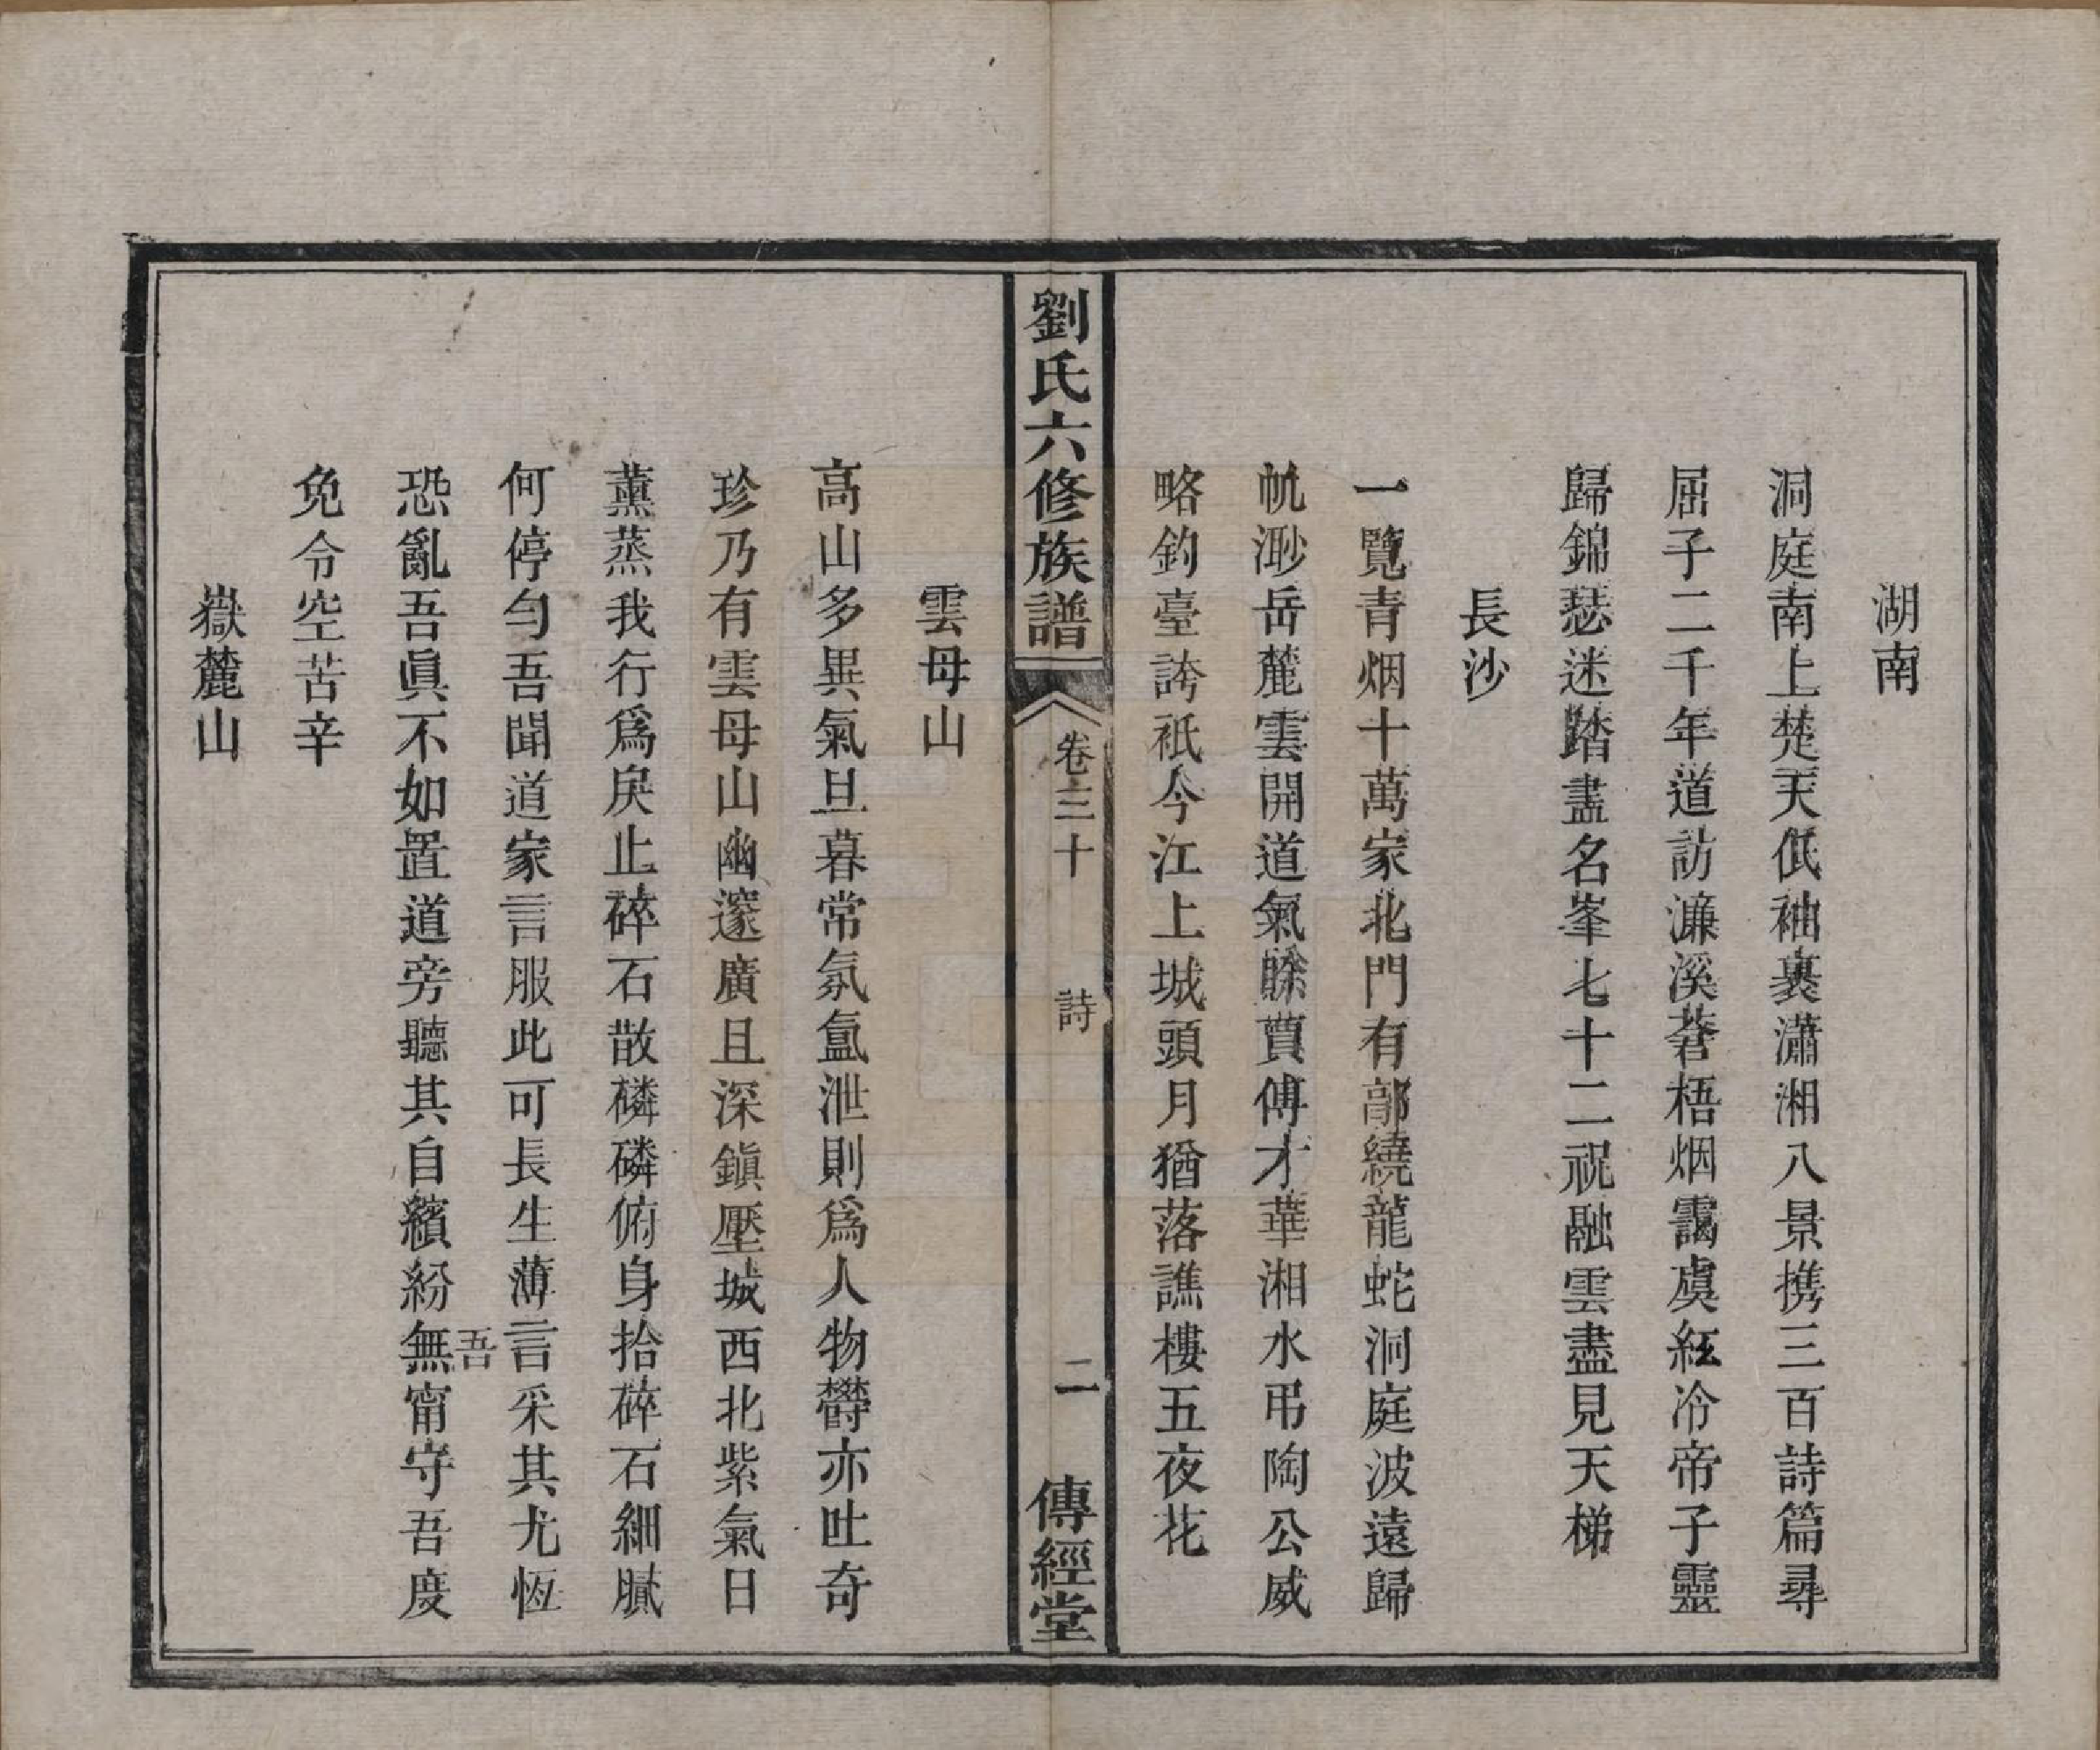 湖南
洞庭南上楚天低袖裏瀟湘八景携三百詩篇尋
屈子二千年道訪濂溪蒼梧烟靄虞紅冷帝子靈
歸錦瑟迷踏盡名峯七十二祝融雲盡見天梯
長沙
一覽青烟十萬家北門有郭繞龍蛇洞庭波遠歸
帆渺岳麓雲開道氣賒賈傅才華湘水弔陶公威
略釣臺誇祇今江上城頭月猶落譙樓五夜花
劉氏六修族譜
卷三十
詩
二
傳經堂
雲母山
高山多異氣旦暮常氛氳泄則爲人物欝亦吐奇
珍乃有雲母山幽邃廣且深鎭壓城西北紫氣日
薰蒸我行爲戾止碎石散磷磷俯身拾碎石細膩
何停勻吾聞道家言服此可長生薄言采其尤恆
恐亂吾眞不如置道旁聽其自繽紛無甯守吾度
吾
免令空苦辛
嶽麓山